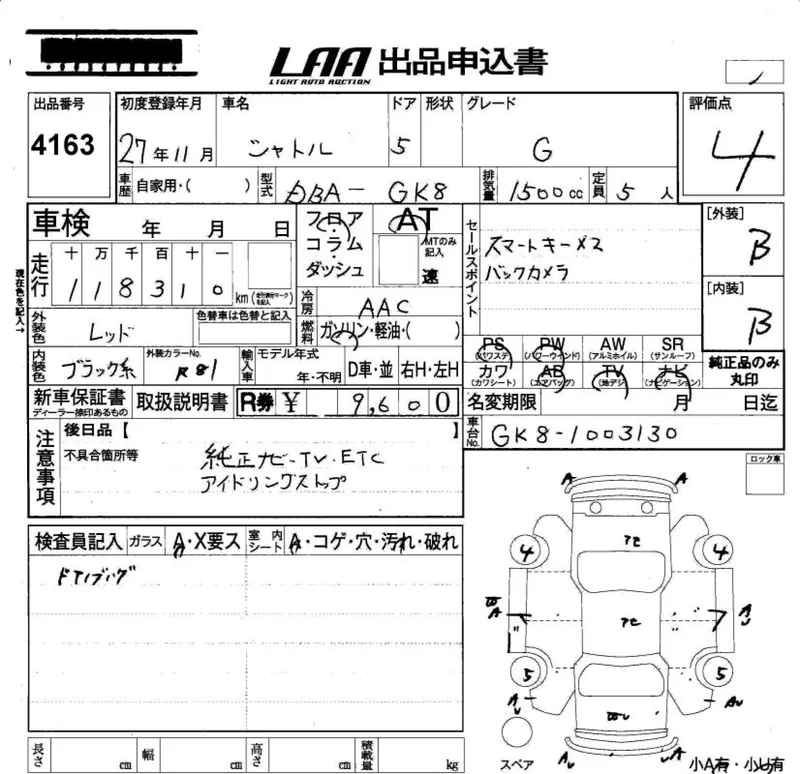 LAA 出品申込書
LIGHT AUTO AUCTION
出品番号 初度登録年月 車名 ドア 形状 グレード 評価点
4163 27年11月 シャトル 5 G 4
車歴 自家用・( ) 型式 DBA-GK8 排気量 1500cc 定員 5人
車検 年 月 日 フロア・コラム・ダッシュ AT MTのみ記入 速
セールスポイント スマートキーメス
バックカメラ
[外装] B
[内装] B
現在色を記入→
走行 十 万 千 百 十 一
118310 km (走行距離マークを記入)
冷房 AAC
燃料 ガソリン・軽油・( )
外装色 レッド 色替車は色替と記入
内装色 ブラック系 外装カラーNo. R81 輸入車 モデル年式 年・不明 D車・並 右H・左H
PS (パワステ) PW (パワーウインド) AW (アルミホイル) SR (サンルーフ)
カワ (カワシート) AB (エアバッグ) TV (地デジ) ナビ (ナビゲーション)
純正品のみ丸印
新車保証書 ディーラー捺印あるもの 取扱説明書 R券 ¥ 9,600
名変期限 月 日迄
車台No. GK8-1003130
注意事項 後日品【 】
不具合箇所等 純正ナビ-TV・ETC
アイドリングストップ
ロック車
検査員記入 ガラス A・X要ス 室内シート A・コゲ・穴・汚れ・破れ
A A
アセ
4 4
A A
アセ
5 5
A A
スペア
A A
小A有・小U有
長さ cm 幅 cm 高さ cm 積載量 kg